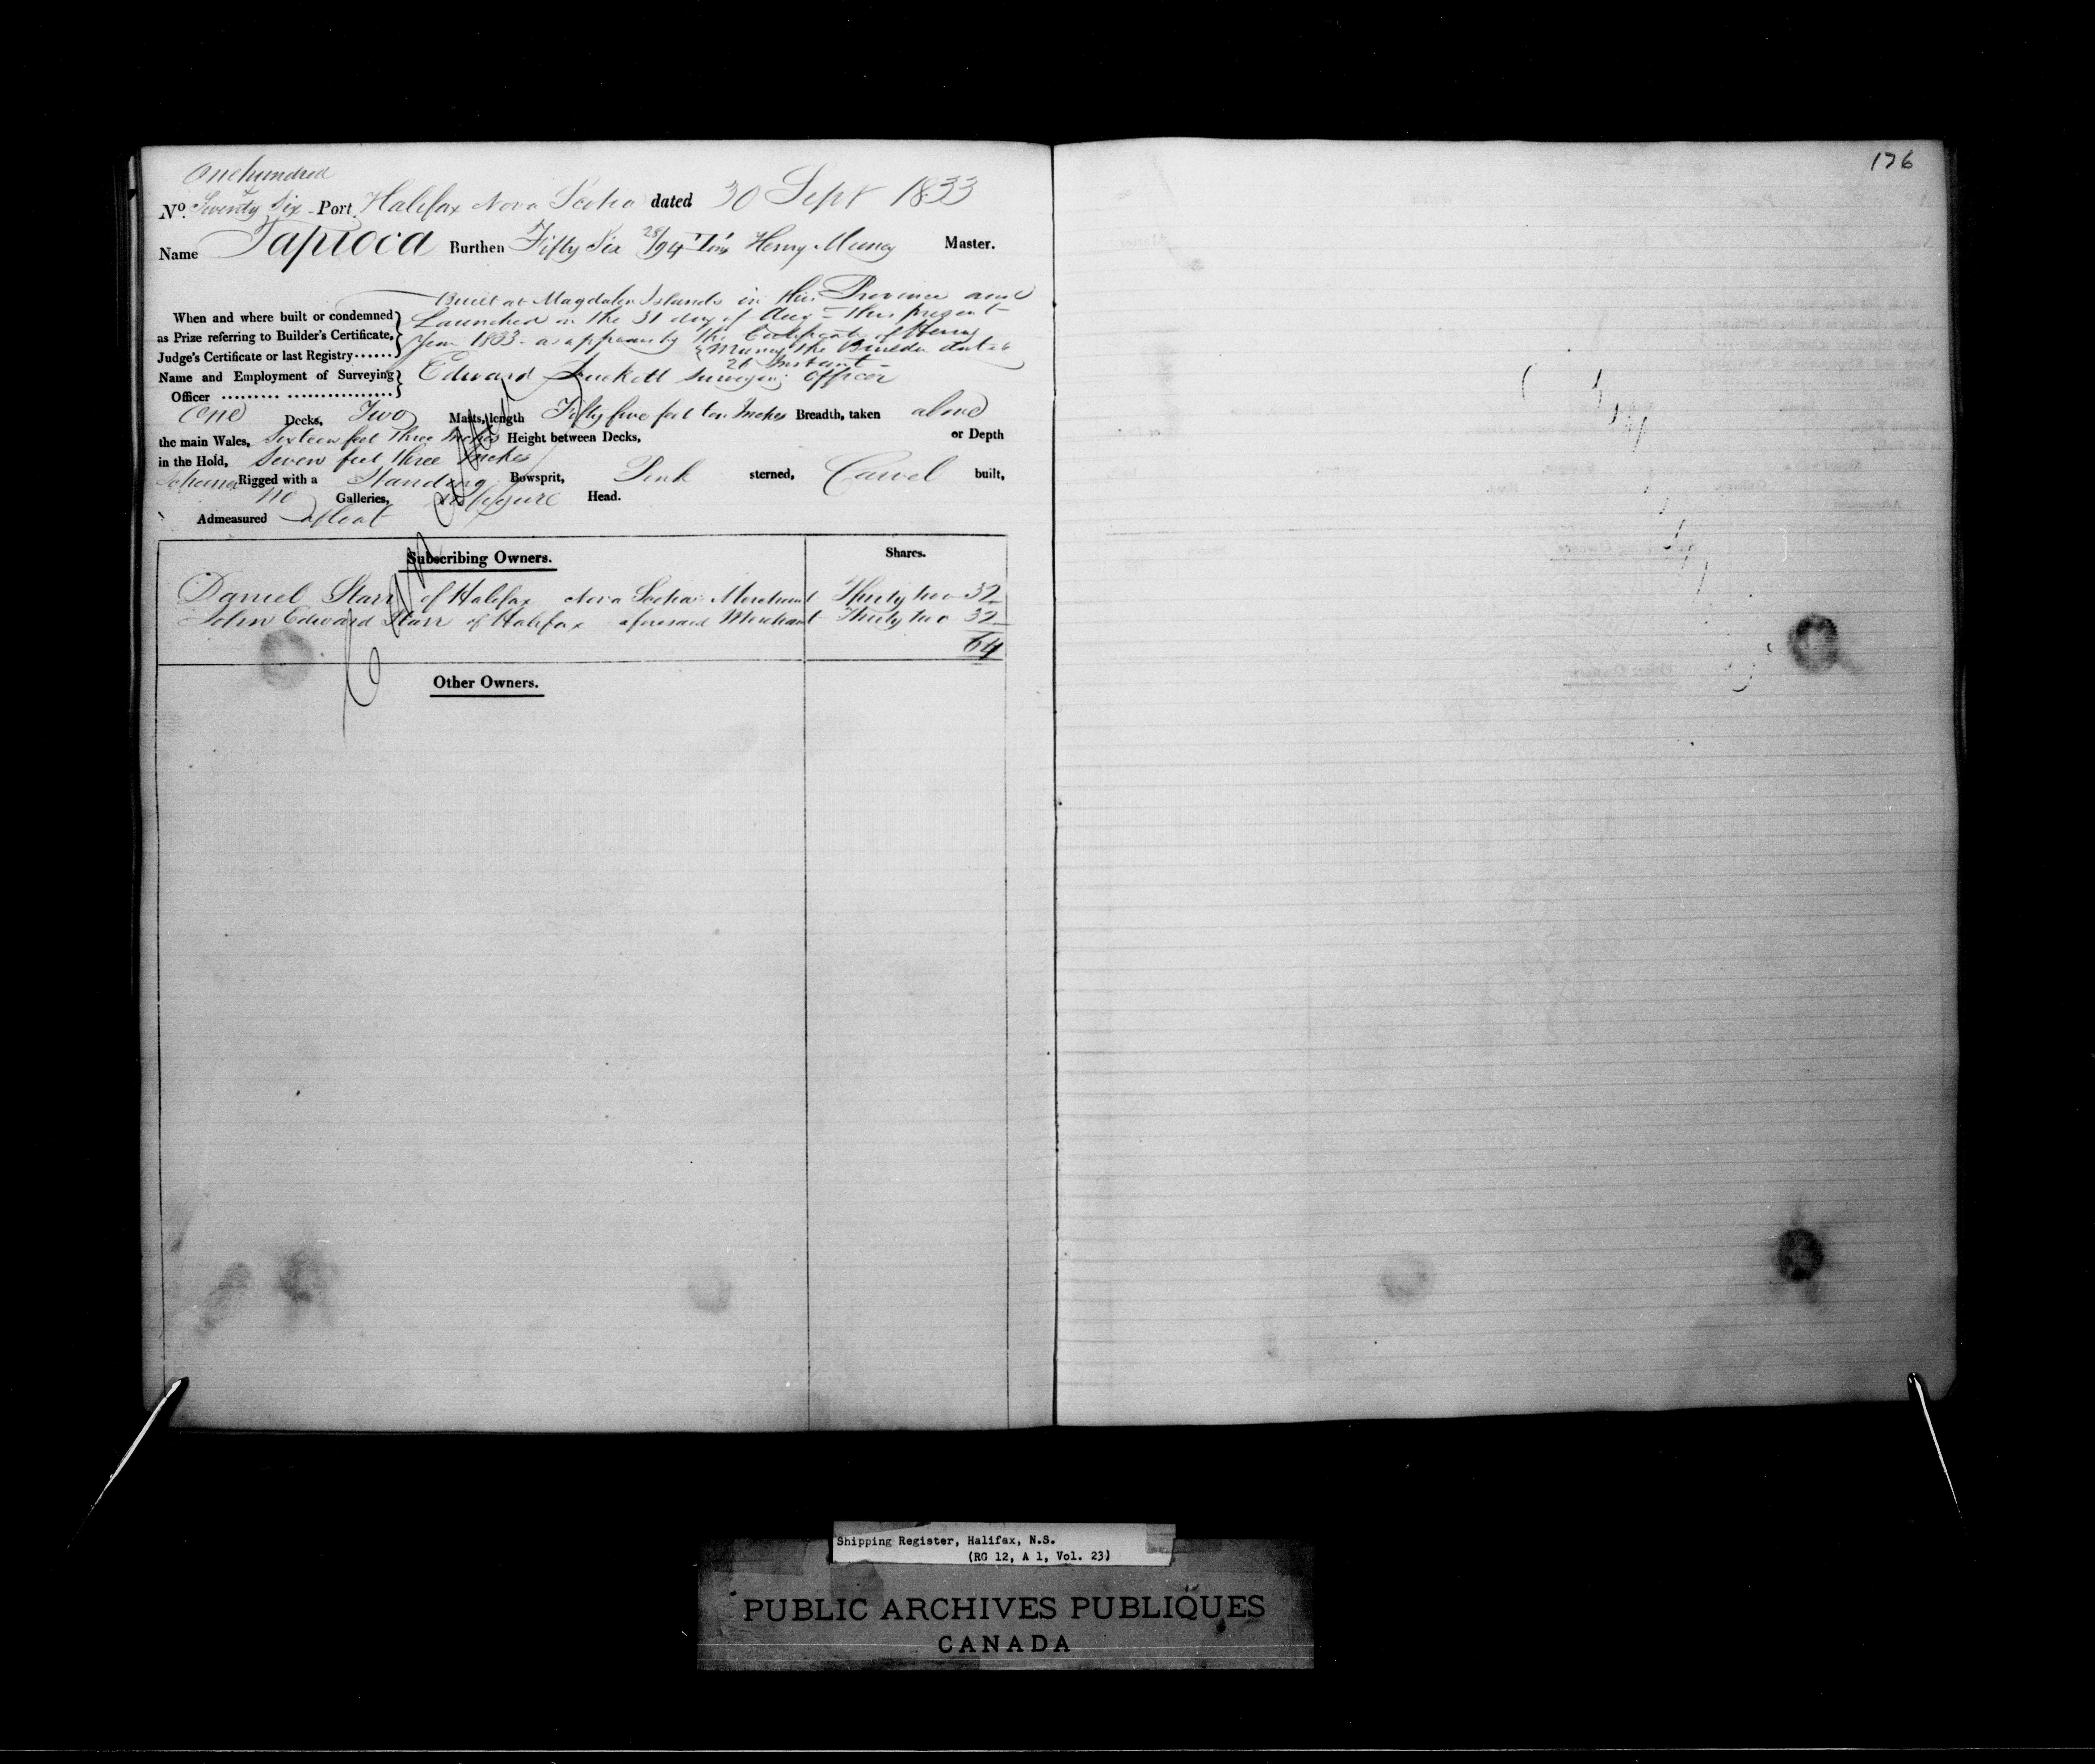 One hundred
No. & Seventy Six - Port Halifax Nova Scotia dated 30 Sept 1833
Name Tapioca Burthen Fifty Six 28/94 Tons Henry Muncy Master.
Built at Magdalen Islands in this Province and
When and where built or condemned Launched on the 31 day of Aug this present
as Prize referring to Builder's Certificate, Year 1833 - as appears by the Certificate of Henry
Judge's Certificate or last Registry...... Muncy the Builder dated
26 Instant -
Name and Employment of Surveying Edward Duckett Surveying Officer
Officer ......... ................
One Decks, Two Masts, length Fifty five feet ten Inches Breadth, taken above
the main Wales, Sixteen feet three Inches Height between Decks, or Depth
in the Hold, Seven feet three Inches
Schooner Rigged with a Standing Bowsprit, Pink sterned, Carvel built,
no Galleries, no figure Head.
Admeasured afloat
Subscribing Owners. Shares.
Daniel Starr of Halifax Nova Scotia Merchant Thirty two 32
John Edward Starr of Halifax aforesaid Merchant Thirty two 32
64
Other Owners.
176
Shipping Register, Halifax, N.S.
(RG 12, A 1, Vol. 23)
PUBLIC ARCHIVES PUBLIQUES
CANADA